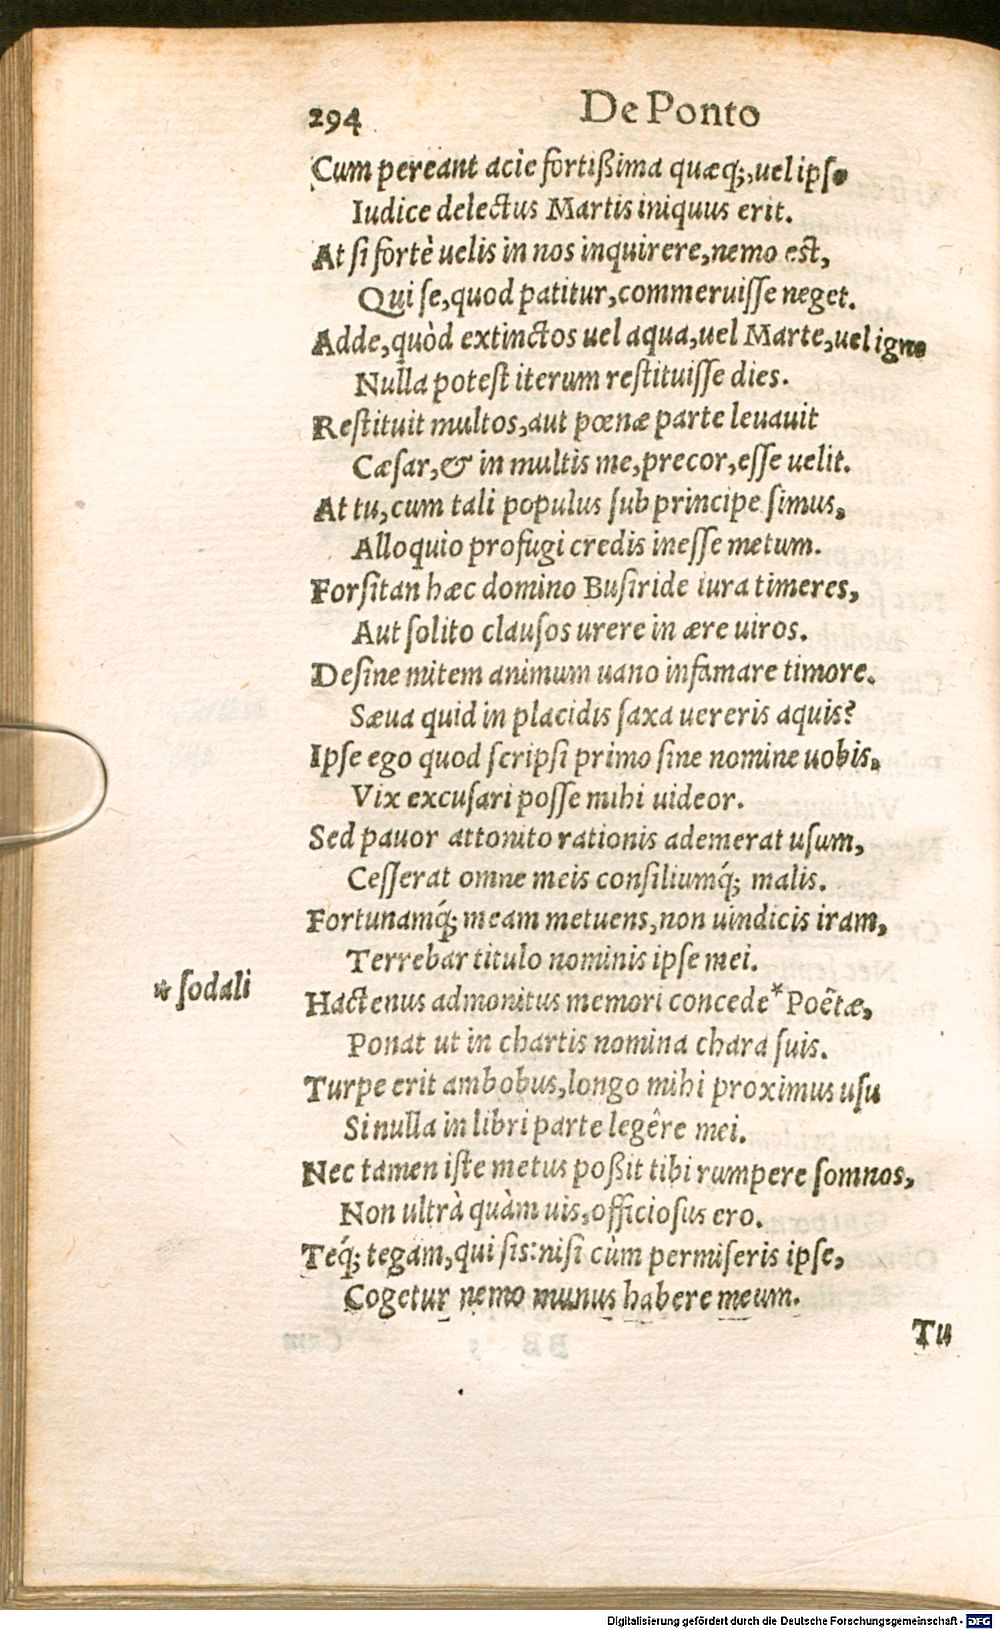 294 De Ponto
Cum pereant acie fortißima quæq́;, uel ipso
Iudice delectus Martis iniquus erit.
At ſi fortè uelis in nos inquirere, nemo eſt,
Qui ſe, quod patitur, commeruiſſe neget.
Adde, quòd extinctos uel aqua, uel Marte, uel igne
Nulla poteſt iterum reſtituiſſe dies.
Reſtituit multos, aut pœnæ parte leuauit
Cæſar, & in multis me, precor, eſſe uelit.
At tu, cum tali populus ſub principe ſimus,
Alloquio profugi credis ineſſe metum.
Forſitan hæc domino Buſiride iura timeres,
Aut ſolito clauſos urere in ære uiros.
Deſine mitem animum uano infamare timore.
Sæua quid in placidis ſaxa uereris aquis?
Ipſe ego quod ſcripſi primo ſine nomine uobis,
Vix excuſari poſſe mihi uideor.
Sed pauor attonito rationis ademerat uſum,
Ceſſerat omne meis conſiliumq́; malis.
Fortunamq́; meam metuens, non uindicis iram,
Terrebar titulo nominis ipſe mei.
* ſodali
Hactenus admonitus memori concede * Poëtæ,
Ponat ut in chartis nomina chara ſuis.
Turpe erit ambobus, longo mihi proximus uſu
Si nulla in libri parte legêre mei.
Nec tamen iſte metus poßit tibi rumpere ſomnos,
Non ultrà quàm uis, officioſus ero.
Teq́; tegam, qui ſis: niſi cùm permiſeris ipſe,
Cogetur nemo munus habere meum.
Tu
Digitalisierung gefördert durch die Deutsche Forschungsgemeinschaft - DFG